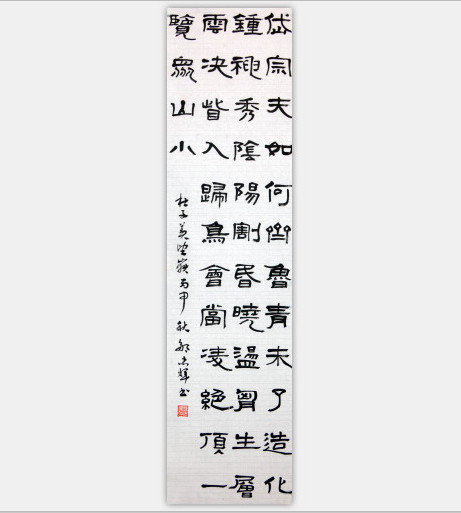 岱宗夫如何亝魯青未了造化
鍾神秀陰陽割昏曉盪胷生層
雲决眥入歸鳥會當凌絕頂一
覽眾山小
杜子美望嶽丙申秋輝書